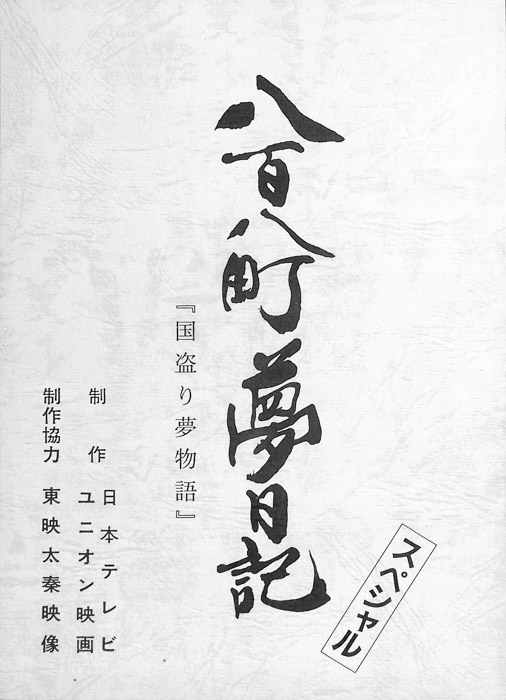 スペシャル
八百八町夢日記
『国盗り夢物語』
制作 日本テレビ
ユニオン映画
制作協力 東映太秦映像